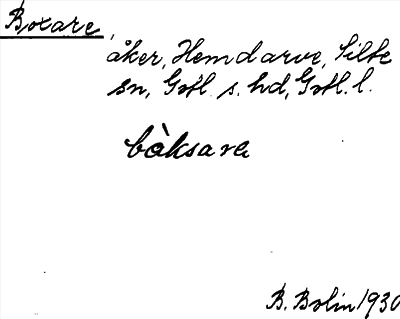 Boxare,
åker, Hemdarve, Silte
sn, Gotl. s. hd, Gotl. l.
bàksarɐ
B. Bolin 1930